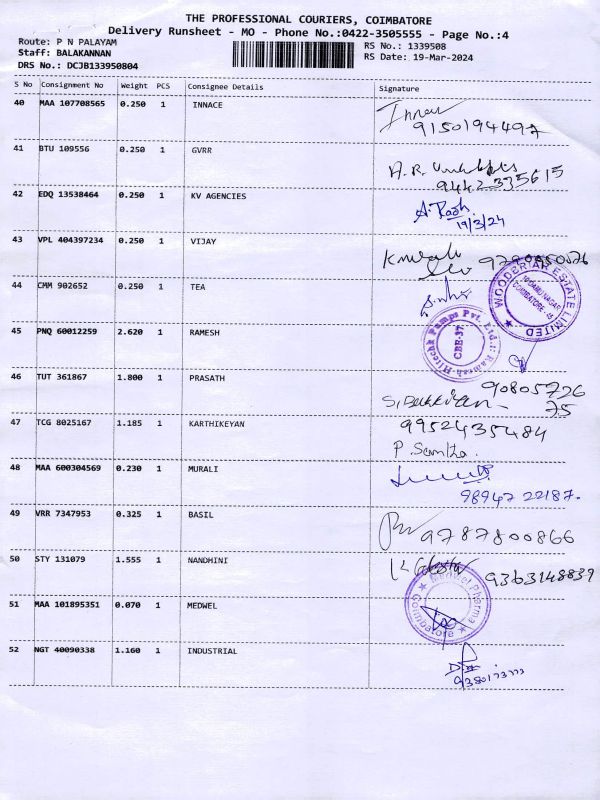 THE PROFESSIONAL COURIERS, COIMBATORE
Delivery Runsheet - MO - Phone No.:0422-3505555 - Page No.:4
Route: P N PALAYAM
RS No.: 1339508
Staff: BALAKANNAN
RS Date: 19-Mar-2024
DRS No.: DCJB133950804
S No Consignment No Weight PCS Consignee Details Signature
40 MAA 107708565 0.250 1 INNACE
9150194497
41 BTU 109556 0.250 1 GVRR
A. R.
9442335615
42 EDQ 13538464 0.250 1 KV AGENCIES
19/3/24
43 VPL 404397234 0.250 1 VIJAY
44 CMM 902652 0.250 1 TEA
WOODBRIAR ESTATE LIMITED
COIMBATORE
45 PNQ 60012259 2.620 1 RAMESH
CBE-37
46 TUT 361867 1.800 1 PRASATH
90805726
75
47 TCG 8025167 1.185 1 KARTHIKEYAN
9952435484
48 MAA 600304569 0.230 1 MURALI
98947 22187.
49 VRR 7347953 0.325 1 BASIL
9787800866
50 STY 131079 1.555 1 NANDHINI
9363148839
51 MAA 101895351 0.070 1 MEDWEL
Medwel Pharma
Coimbatore
52 NGT 40090338 1.160 1 INDUSTRIAL